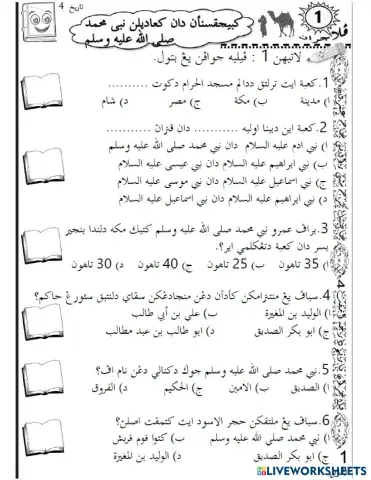 تاريخ 4
1
کبيجقسنأن دان کعاديلن نبي محمد
صلى الله عليه وسلم
ڤلاجرن
لاتيهن 1 : ڤيليه جواڤن يڠ بتول.
1.کعبة ايت ترلتق ددالم مسجد الحرام دکوت ..........
ا) مدينة ب) مکة ج) مصر د) شام
2.کعبة اين دبينا اوليه .......... دان ..........
ا) نبي ادم عليه السلام دان نبي محمد صلى الله عليه وسلم
ب) نبي ابراهيم عليه السلام دان نبي عيسى عليه السلام
ج) نبي اسماعيل عليه السلام دان نبي موسى عليه السلام
د) نبي ابراهيم عليه السلام دان نبي اسماعيل عليه السلام
3.براڤ عمرو نبي محمد صلى الله عليه وسلم کتيک مکه دلندا بنجير
بسر دان کعبة دتڠݢلمي اير؟.
ا) 35 تاهون ب) 25 تاهون ج) 40 تاهون د) 30 تاهون
4.سياڤ يڠ منترامکن کأدأن دڠن منچادڠکن سڤاي دلنتيق سئورڠ حاکم؟
ا) الوليد بن المغيرة ب) علي بن أبي طالب
ج) ابو بکر الصديق د) ابو طالب بن عبد مطالب
5.نبي محمد صلى الله عليه وسلم جوݢ دکنالي دڠن نام اڤ؟
ا) الصديق ب) الامين ج) الحکيم د) الفروق
6.سياڤ يڠ ملتقکن حجر الاسود ايت کتمڤت اصلن؟
ا) نبي محمد صلى الله عليه وسلم ب) کتوا قوم قريش
ج) ابو بکر الصديق د) الوليد بن المغيرة
1
LIVEWORKSHEETS